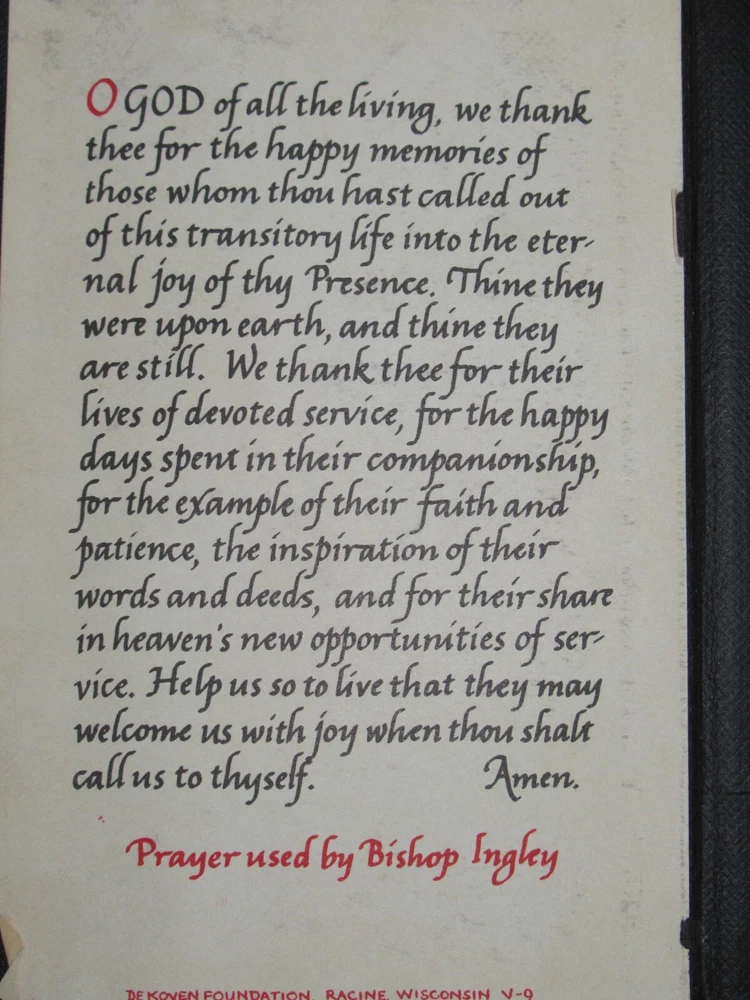 O GOD of all the living, we thank
thee for the happy memories of
those whom thou hast called out
of this transitory life into the eter-
nal joy of thy Presence. Thine they
were upon earth, and thine they
are still. We thank thee for their
lives of devoted service, for the happy
days spent in their companionship,
for the example of their faith and
patience, the inspiration of their
words and deeds, and for their share
in heaven's new opportunities of ser-
vice. Help us so to live that they may
welcome us with joy when thou shalt
call us to thyself. Amen.
Prayer used by Bishop Ingley
DE KOVEN FOUNDATION, RACINE, WISCONSIN V-9